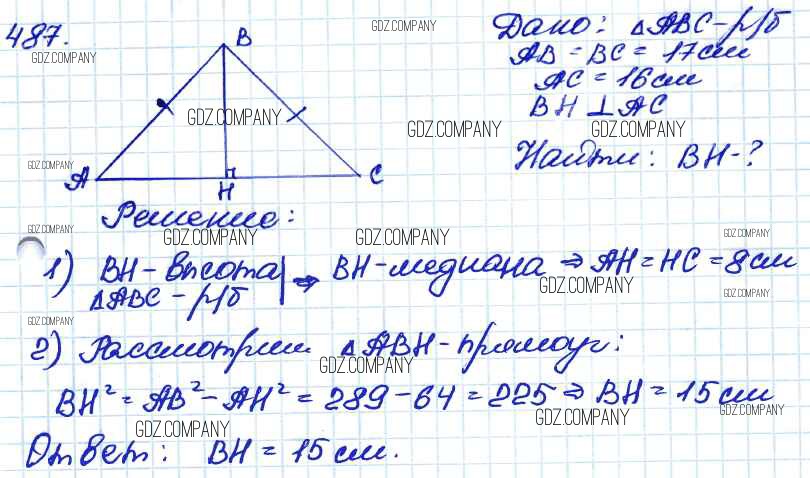 487.
GDZ.COMPANY
B
A
H
C
GDZ.COMPANY
GDZ.COMPANY
Дано: △ABC - р/б
AB = BC = 17 см
AC = 16 см
BH ⊥ AC
GDZ.COMPANY GDZ.COMPANY
Найти: BH - ?
GDZ.COMPANY
Решение:
GDZ.COMPANY GDZ.COMPANY GDZ.COMPANY GDZ.COMPANY
1) BH - высота | ⇒ BH - медиана ⇒ AH = HC = 8 см
△ABC - р/б
GDZ.COMPANY GDZ.COMPANY
GDZ.COMPANY
2) Рассмотрим △ABH - прямоуг:
GDZ.COMPANY
BH² = AB² - AH² = 289 - 64 = 225 ⇒ BH = 15 см
GDZ.COMPANY GDZ.COMPANY GDZ.COMPANY
Ответ: BH = 15 см.